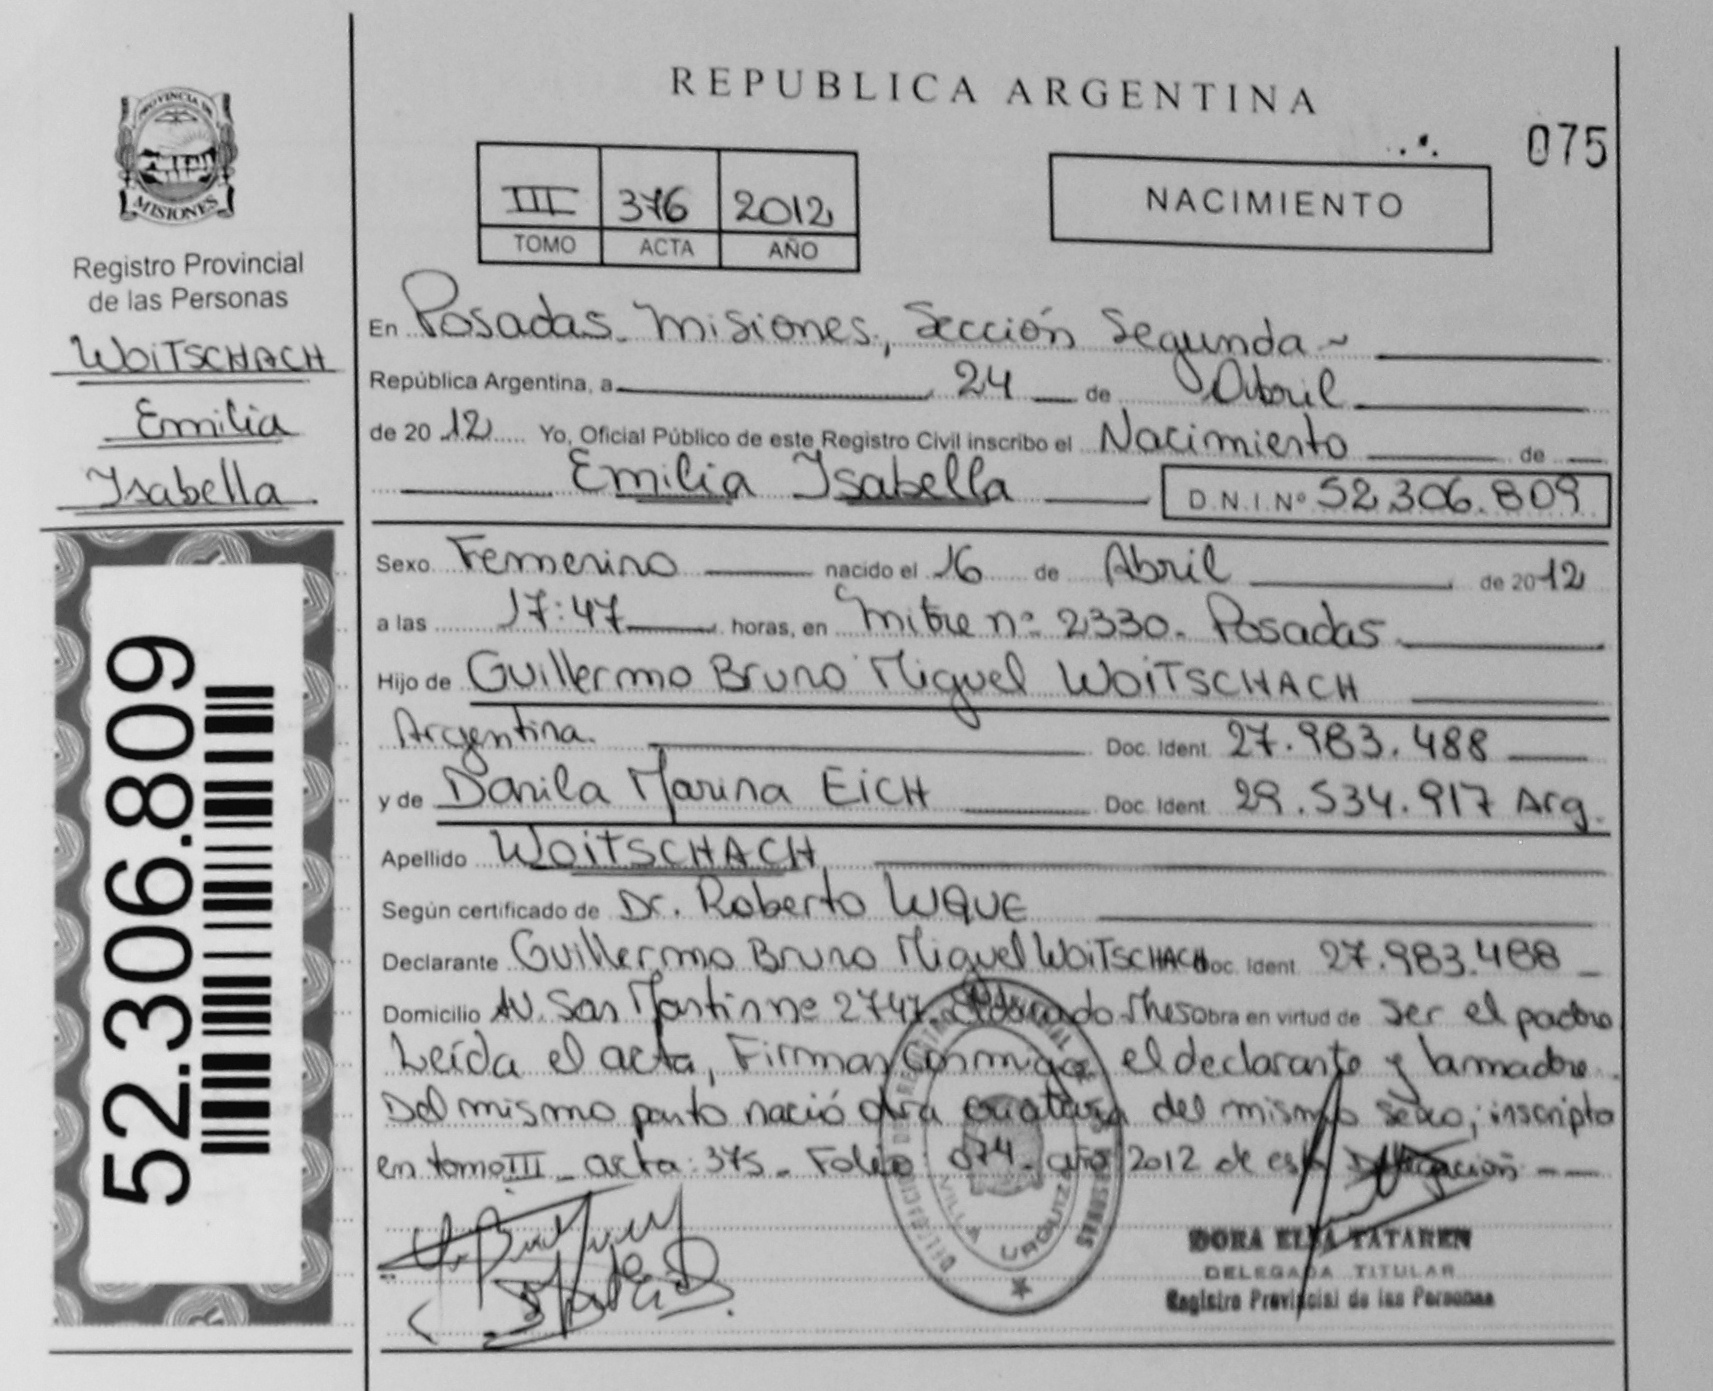 REPUBLICA ARGENTINA
075
PROVINCIA DE
MISIONES
Registro Provincial
de las Personas
WOITSCHACH
Emilia
Isabella
52.306.809
III 376 2012
TOMO ACTA AÑO
NACIMIENTO
En Posadas. Misiones, Sección Segunda
República Argentina, a 24 de Abril
de 2012 Yo, Oficial Público de este Registro Civil inscribo el Nacimiento de
Emilia Isabella D.N.I.Nº 52.306.809
Sexo Femenino nacido el 16 de Abril de 2012
a las 17:47 horas, en Mitre nº 2330. Posadas.
Hijo de Guillermo Bruno Miguel WOITSCHACH
Argentina. Doc. Ident. 27.983.488
y de Danila Marina EICH Doc. Ident. 29.534.917 Arg.
Apellido WOITSCHACH
Según certificado de Dr. Roberto
Declarante Guillermo Bruno Miguel WOITSCHACH Doc. Ident. 27.983.488
Domicilio AV. San Martin nº 2747. Eldorado Mnes Obra en virtud de ser el padre
Leída el acta, Firman conmigo el declarante y la madre.
Del mismo parto nació otra criatura del mismo sexo; inscripto
en tomo III - acta: 375 - Folio: 074 - año 2012 de esta Delegación.
VILLA URQUIZA
DORA ELSA TATAREN
DELEGADA TITULAR
Registro Provincial de las Personas